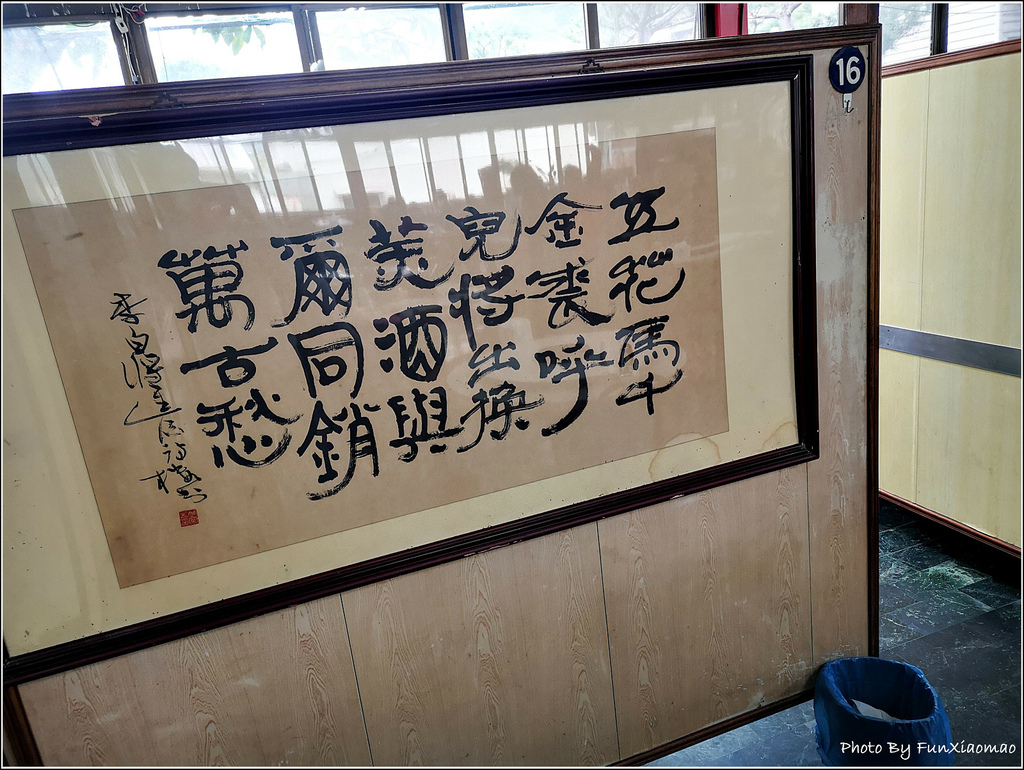 五花馬千
金裘呼
兒將出換
美酒與
爾同銷
萬古愁
李白將進酒
16
Photo By FunXiaomao